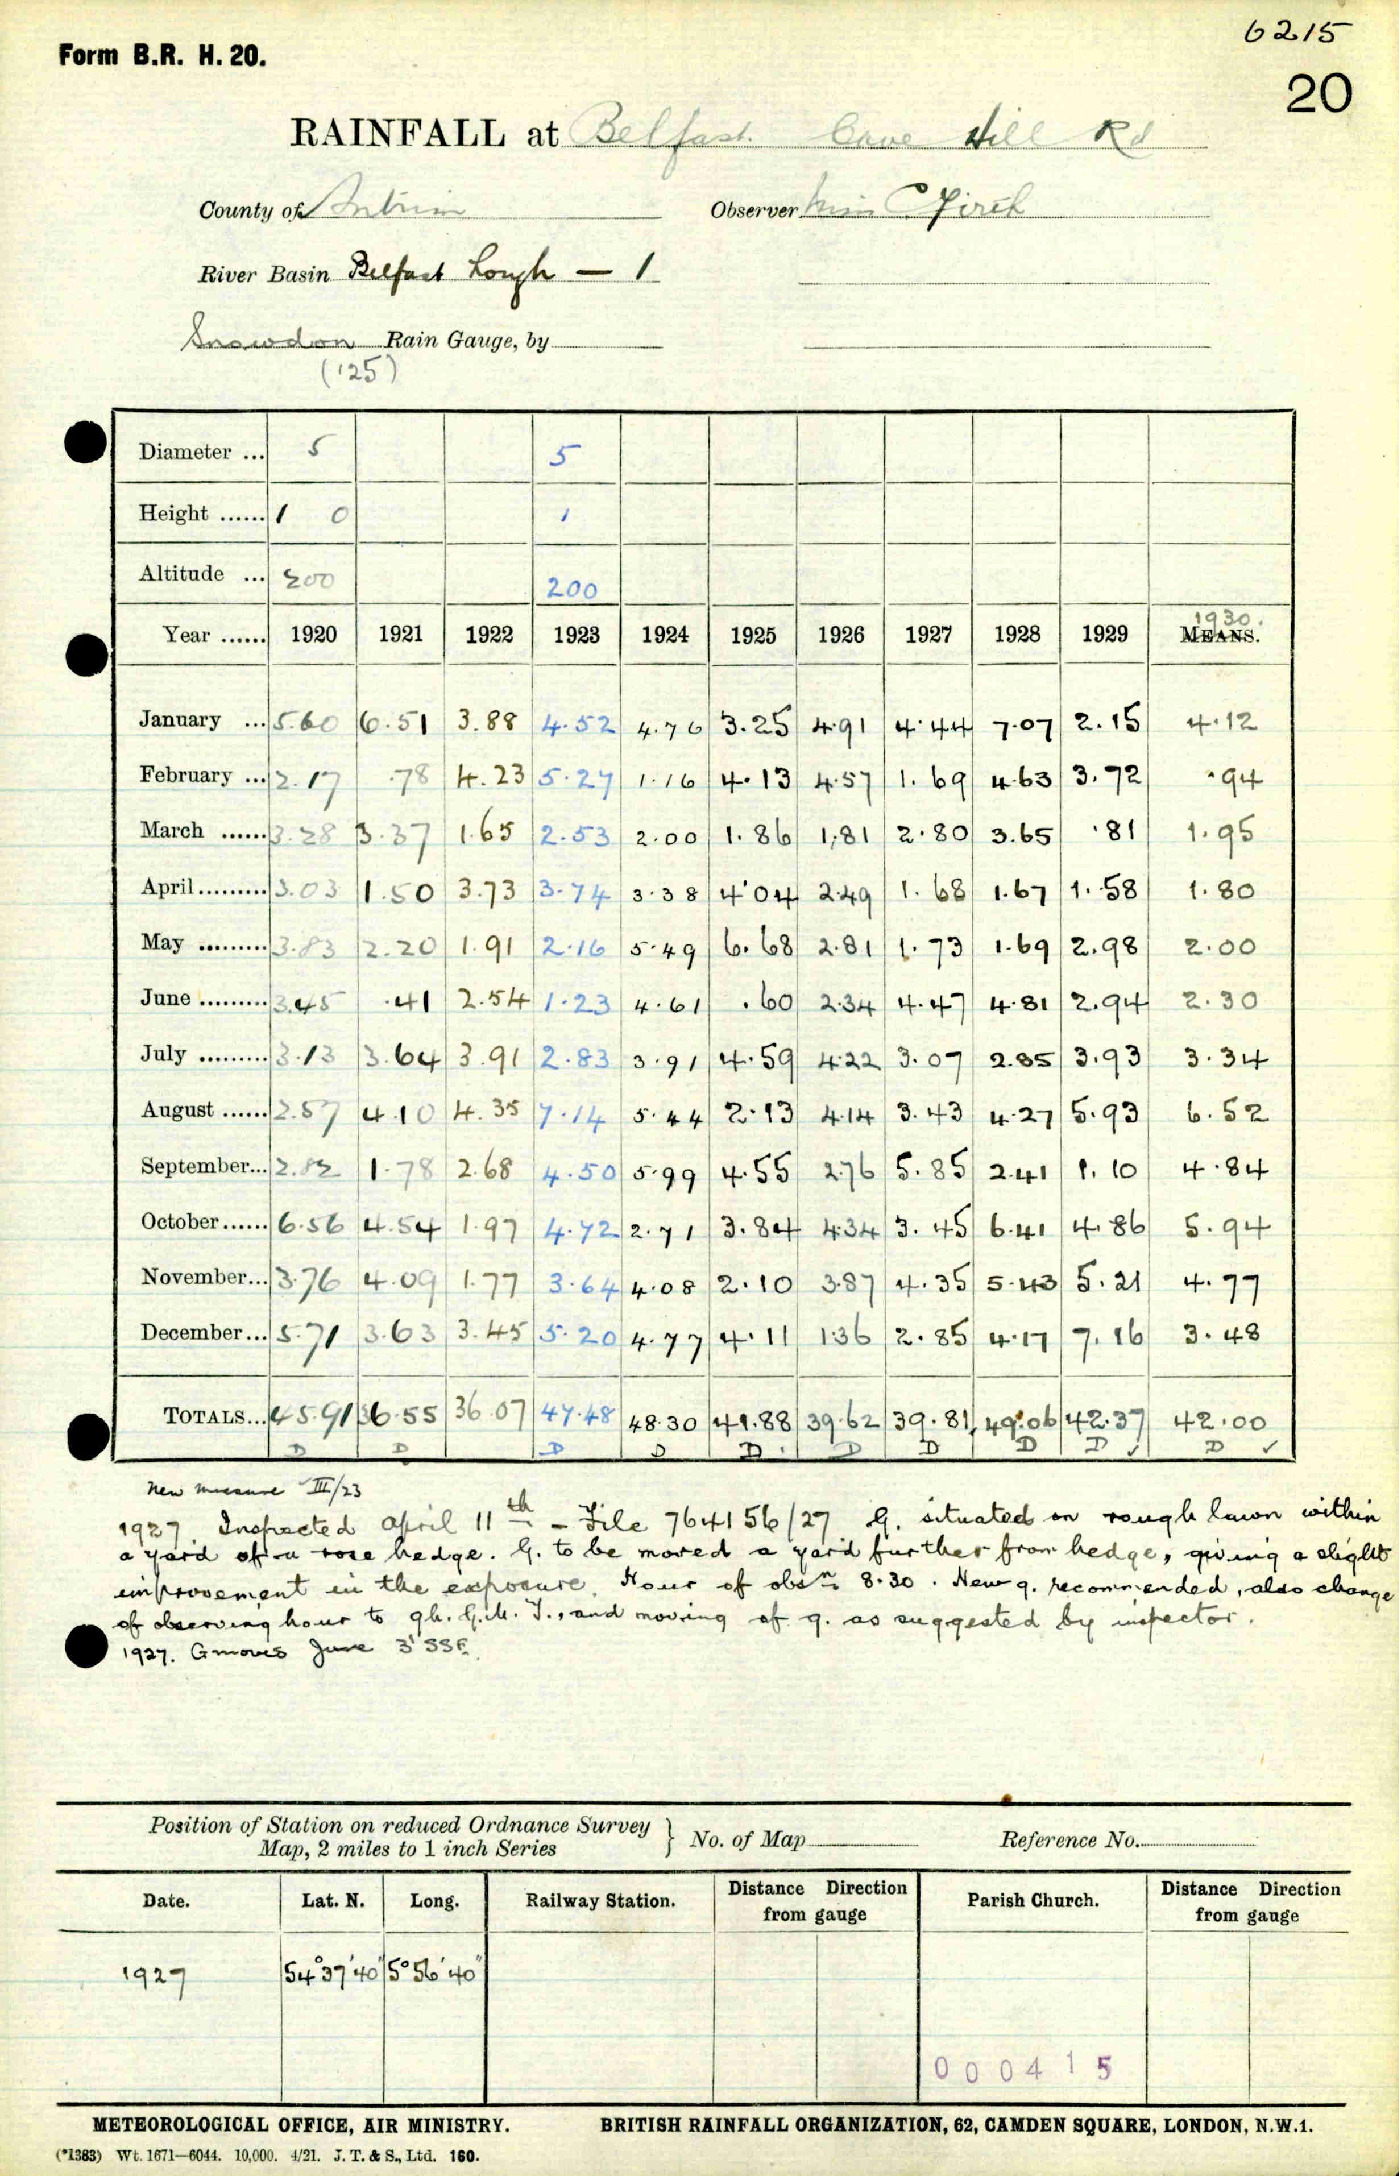 6215
Form B.R. H. 20.
20
RAINFALL at Belfast. Cave Hill Rd
County of Antrim Observer Miss C Firth
River Basin Belfast Lough — 1
Snowdon Rain Gauge, by
('25)
Diameter ... 5 5
Height ...... 1 0 1
Altitude ... 200 200
1930.
Year ...... 1920 1921 1922 1923 1924 1925 1926 1927 1928 1929 MEANS.
January ... 5.60 6.51 3.88 4.52 4.76 3.25 4.91 4.44 7.07 2.15 4.12
February ... 2.17 .78 4.23 5.27 1.16 4.13 4.57 1.69 4.63 3.72 .94
March ...... 3.28 3.37 1.65 2.53 2.00 1.86 1.81 2.80 3.65 .81 1.95
April ......... 3.03 1.50 3.73 3.74 3.38 4.04 2.49 1.68 1.67 1.58 1.80
May ......... 3.83 2.20 1.91 2.16 5.49 6.68 2.81 1.73 1.69 2.98 2.00
June ......... 3.45 .41 2.54 1.23 4.61 .60 2.34 4.47 4.81 2.94 2.30
July ......... 3.13 3.64 3.91 2.83 3.91 4.59 4.22 3.07 2.85 3.93 3.34
August ...... 2.57 4.10 4.35 7.14 5.44 2.13 4.14 3.43 4.27 5.93 6.52
September... 2.82 1.78 2.68 4.50 5.99 4.55 2.76 5.85 2.41 1.10 4.84
October ...... 6.56 4.54 1.97 4.72 2.71 3.84 4.34 3.45 6.41 4.86 5.94
November... 3.76 4.09 1.77 3.64 4.08 2.10 3.87 4.35 5.43 5.21 4.77
December... 5.71 3.63 3.45 5.20 4.77 4.11 1.36 2.85 4.17 7.16 3.48
TOTALS... 45.91 36.55 36.07 47.48 48.30 41.88 39.62 39.81 49.06 42.37 42.00
D D D D D D D D D ✓ D ✓
New measure III/23
1927 Inspected April 11th – File 764156/27 G. situated on rough lawn within
a yard of a rose hedge. G. to be moved a yard further from hedge, giving a slight
improvement in the exposure. Hour of obsn 8.30. New g. recommended, also change
of observing hour to 9h. G.M.T., and moving of g. as suggested by inspector.
1927. G moved June 3' SSE.
Position of Station on reduced Ordnance Survey
Map, 2 miles to 1 inch Series } No. of Map Reference No.
Date. Lat. N. Long. Railway Station. Distance Direction from gauge Parish Church. Distance Direction from gauge
1927 54°37'40" 5°56'40"
000415
METEOROLOGICAL OFFICE, AIR MINISTRY. BRITISH RAINFALL ORGANIZATION, 62, CAMDEN SQUARE, LONDON, N.W.1.
(*1383) Wt. 1671—6044. 10,000. 4/21. J. T. & S., Ltd. 160.